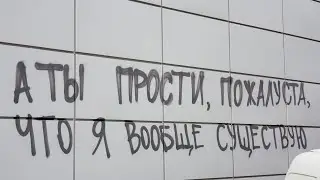 А ТЫ ПРОСТИ, ПОЖАЛУСТА,
ЧТО Я ВООБЩЕ СУЩЕСТВУЮ